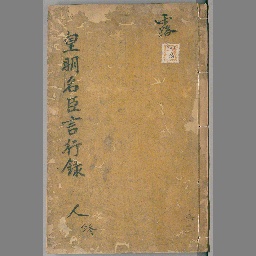 露
皇明名臣言行錄
人
終